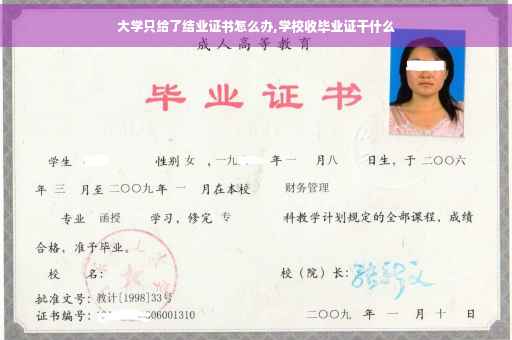 大学只给了结业证书怎么办,学校收毕业证干什么
成人高等教育
毕业证书
学生 性别 女 ,一九 年 一 月八 日生，于 二〇〇六
年 三 月至 二〇〇九 年 一 月在本校 财务管理
专业 函授 学习，修完 专 科教学计划规定的全部课程，成绩
合格，准予毕业。
校 名： 校（院）长：
批准文号：教计[1998]33号
证书编号： 06001310 二〇〇九 年 一 月 十 日